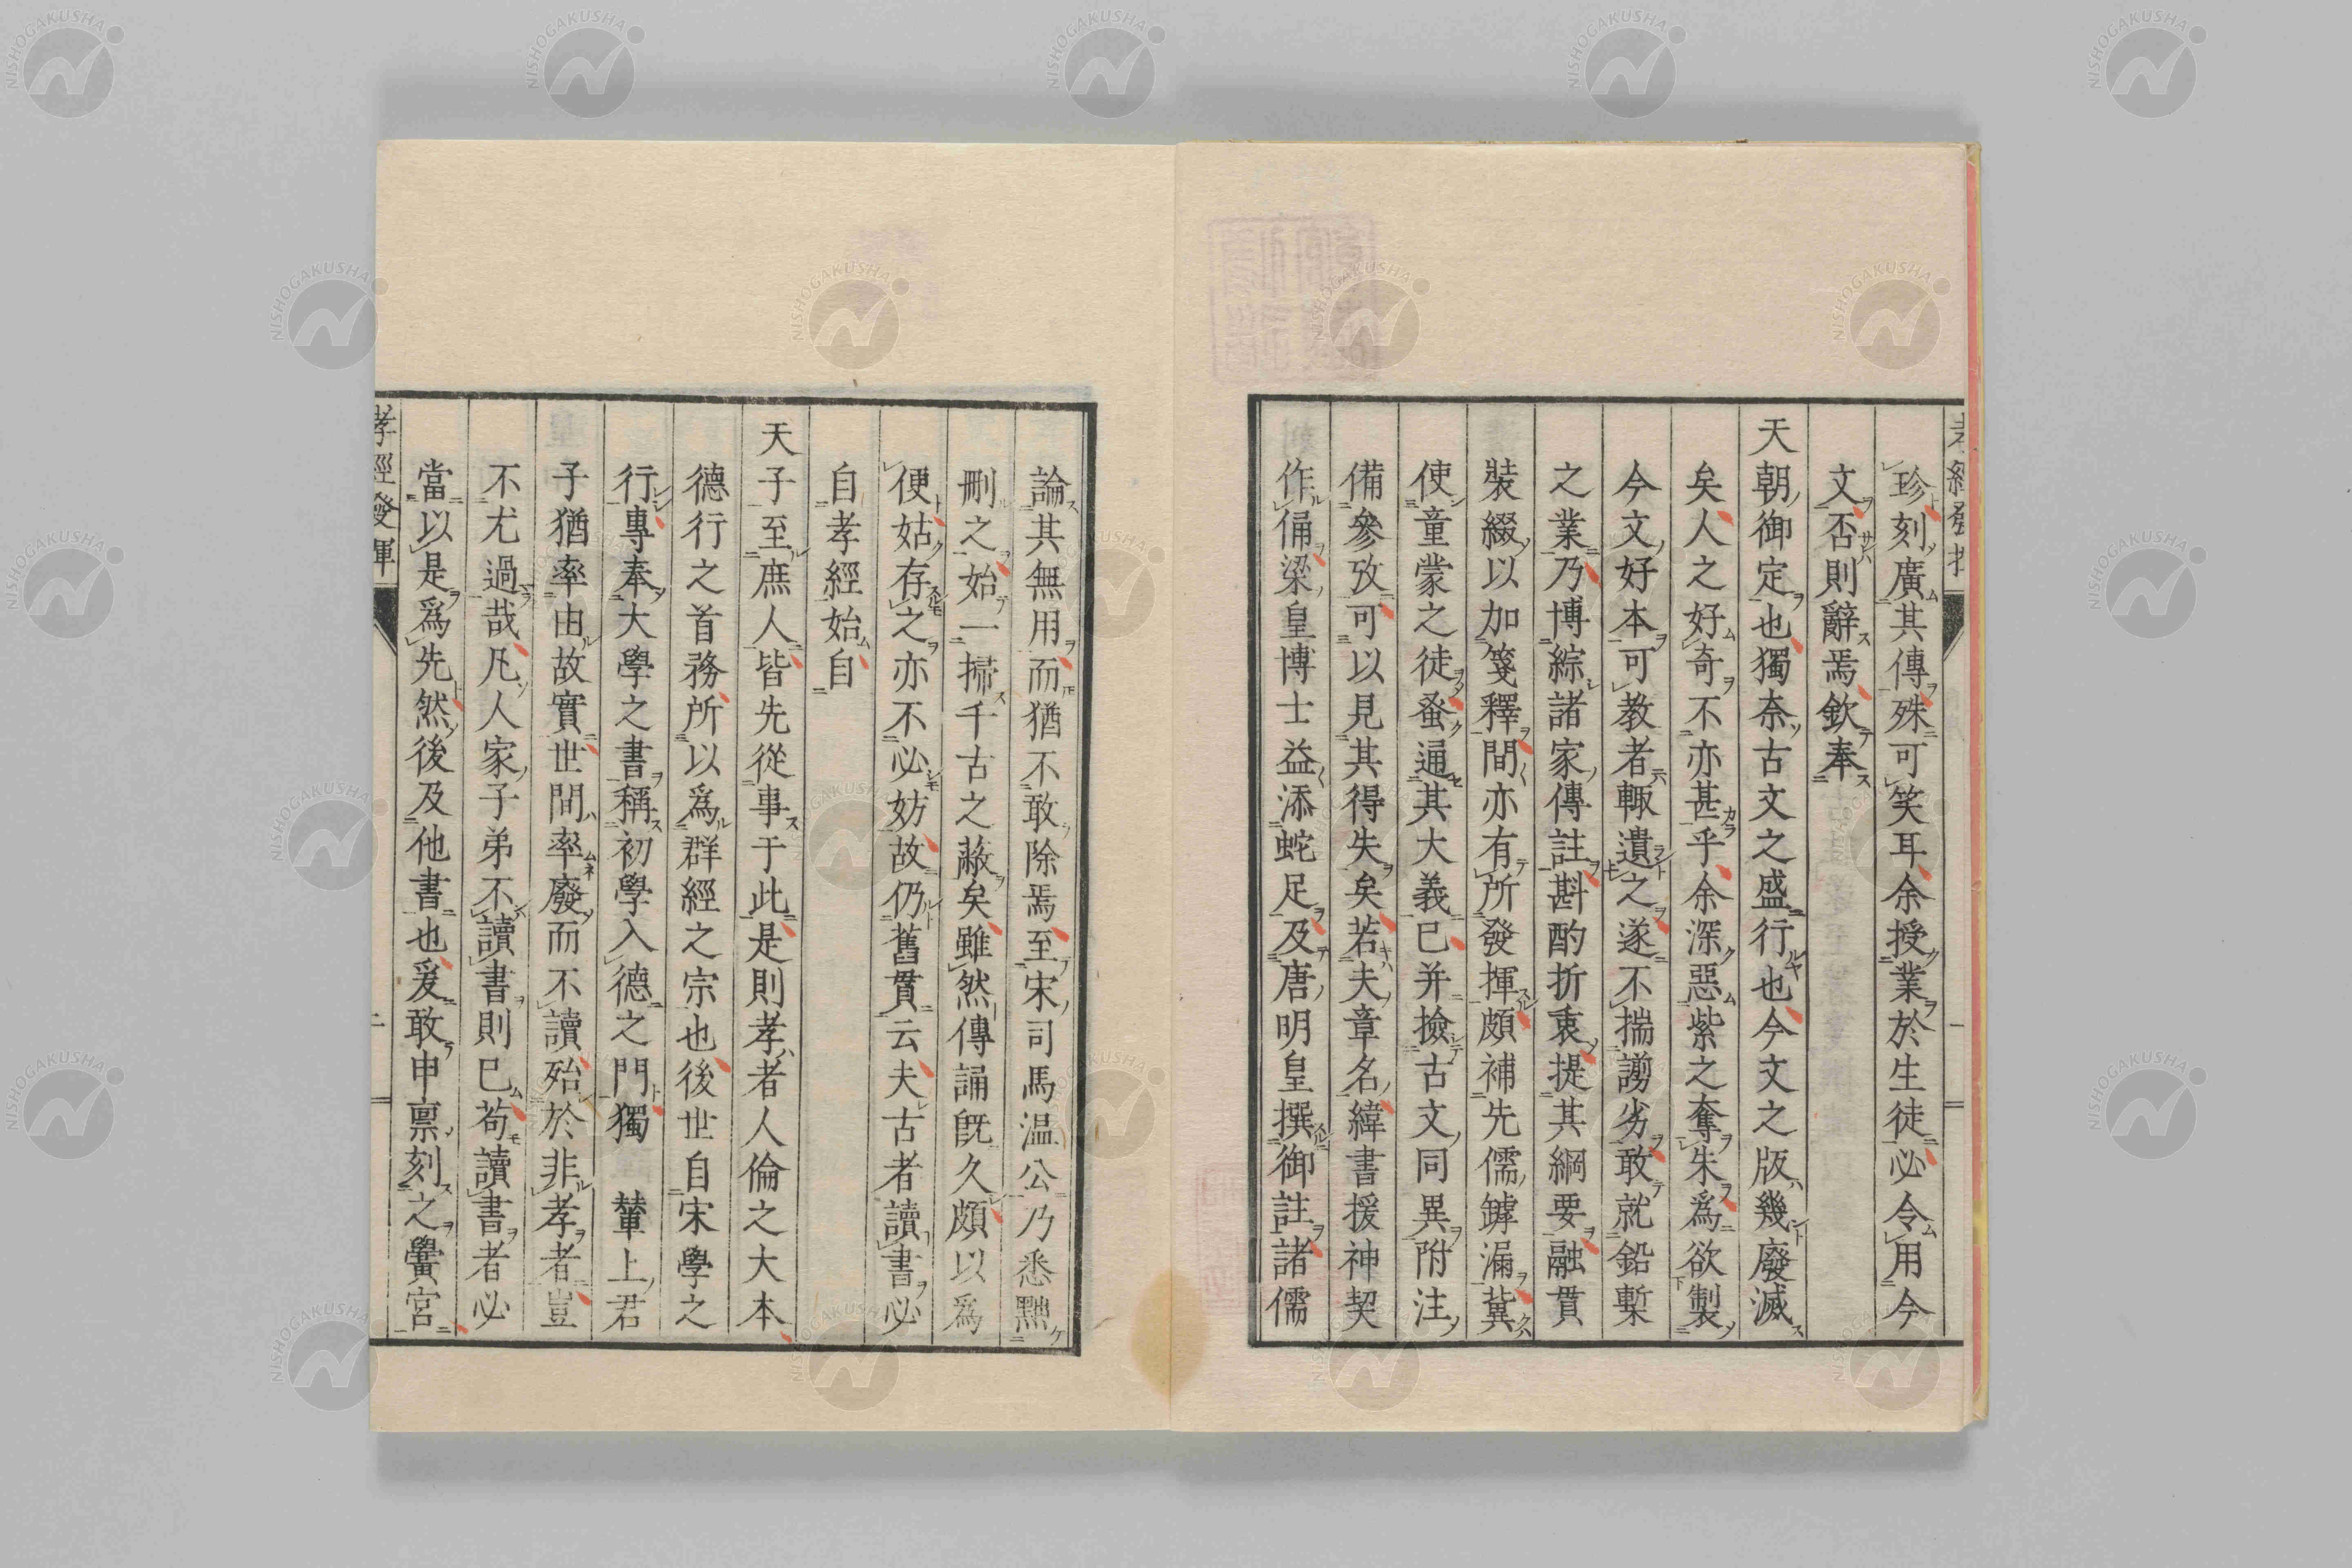 珍刻廣其傳殊可笑耳余授業於生徒必令用今
文否則辭焉欽奉
天朝御定也獨奈古文之盛行也今文之版幾廢滅
矣人之好奇不亦甚乎余深惡紫之奪朱爲欲製
今文好本可教者輙遺之遂不揣謭劣敢就鉛槧
之業乃博綜諸家傳註斟酌折衷提其綱要融貫
裝綴以加箋釋間亦有所發揮頗補先儒罅漏冀
使童蒙之徒蚤通其大義已并撿古文同異附注
備參攷可以見其得失矣若夫章名緯書援神契
作俑梁皇博士益添蛇足及唐明皇撰御註諸儒
論其無用而猶不敢除焉至宋司馬温公乃悉黜
刪之始一掃千古之蔽矣雖然傳誦旣久頗以爲
便姑存之亦不必妨故仍舊貫云夫古者讀書必
自孝經始自
天子至庶人皆先從事于此是則孝者人倫之大本
德行之首務所以爲群經之宗也後世自宋學之
行專奉大學之書稱初學入德之門獨 輦上君
子猶率由故實世間率廢而不讀殆於非孝者豈
不尤過哉凡人家子弟不讀書則已苟讀書者必
當以是爲先然後及他書也爰敢申禀刻之黌宮
孝經發揮
二
NISHOGAKUSHA